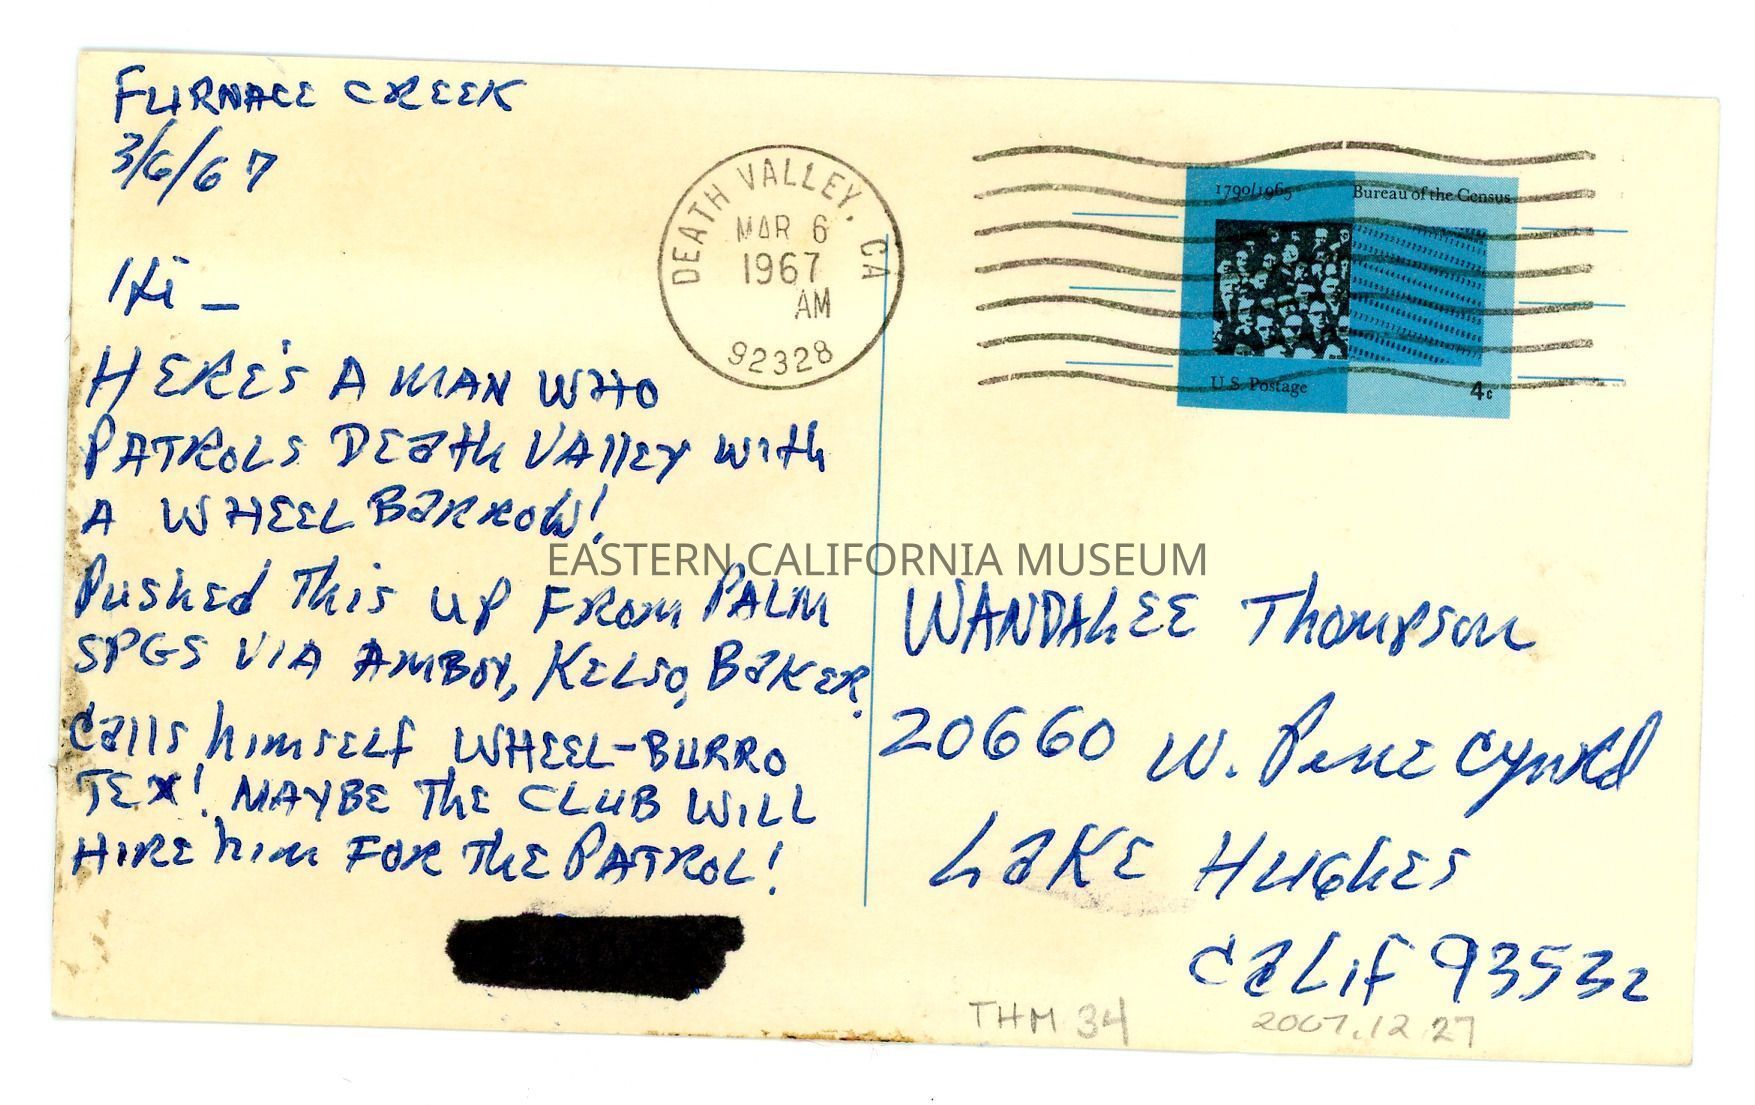 FURNACE CREEK
3/6/67
Hi –
HERE'S A MAN WHO
PATROLS DEath VAllEY With
A WHEEL BaRROW!
Pushed This UP FROM PALM
SPGS VIA AMBOY, KELSO, BaKER.
Calls himsELf WHEEL-BURRO
TEX! MAYBE ThE CLUB WILL
HIRE him FOR ThE PATROL!
DEATH VALLEY, CA
MAR 6
1967
AM
92328
1790/1965 Bureau of the Census
U.S. Postage 4c
EASTERN CALIFORNIA MUSEUM
WANDALEE Thompson
20660 W. Pine
LaKE HUGhES
CaLif 93532
THM 34 2007.12.27